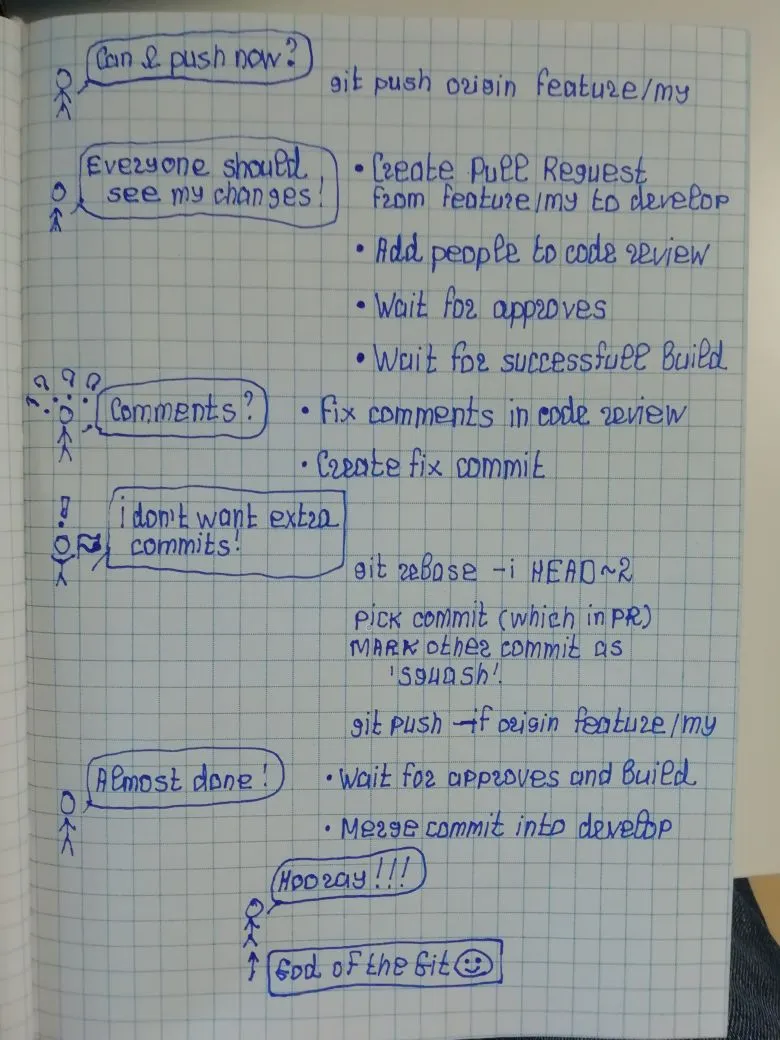 Can I push now?
git push origin feature/my
Everyone should
see my changes!
• Create Pull Request
from feature/my to develop
• Add people to code review
• Wait for approves
• Wait for successfull build
? ? ? ?
Comments?
• Fix comments in code review
• Create fix commit
!
i don't want extra
commits!
git rebase -i HEAD~2
pick commit (which in PR)
MARK other commit as
'squash'.
git push -f origin feature/my
Almost done!
• Wait for approves and build
• Merge commit into develop
Hooray!!!
God of the Git